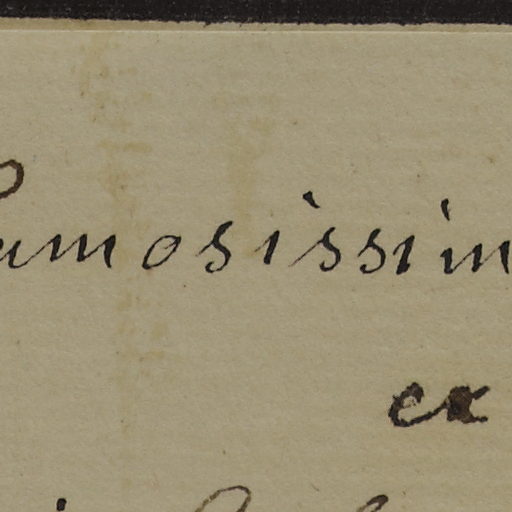 amosissim
ex